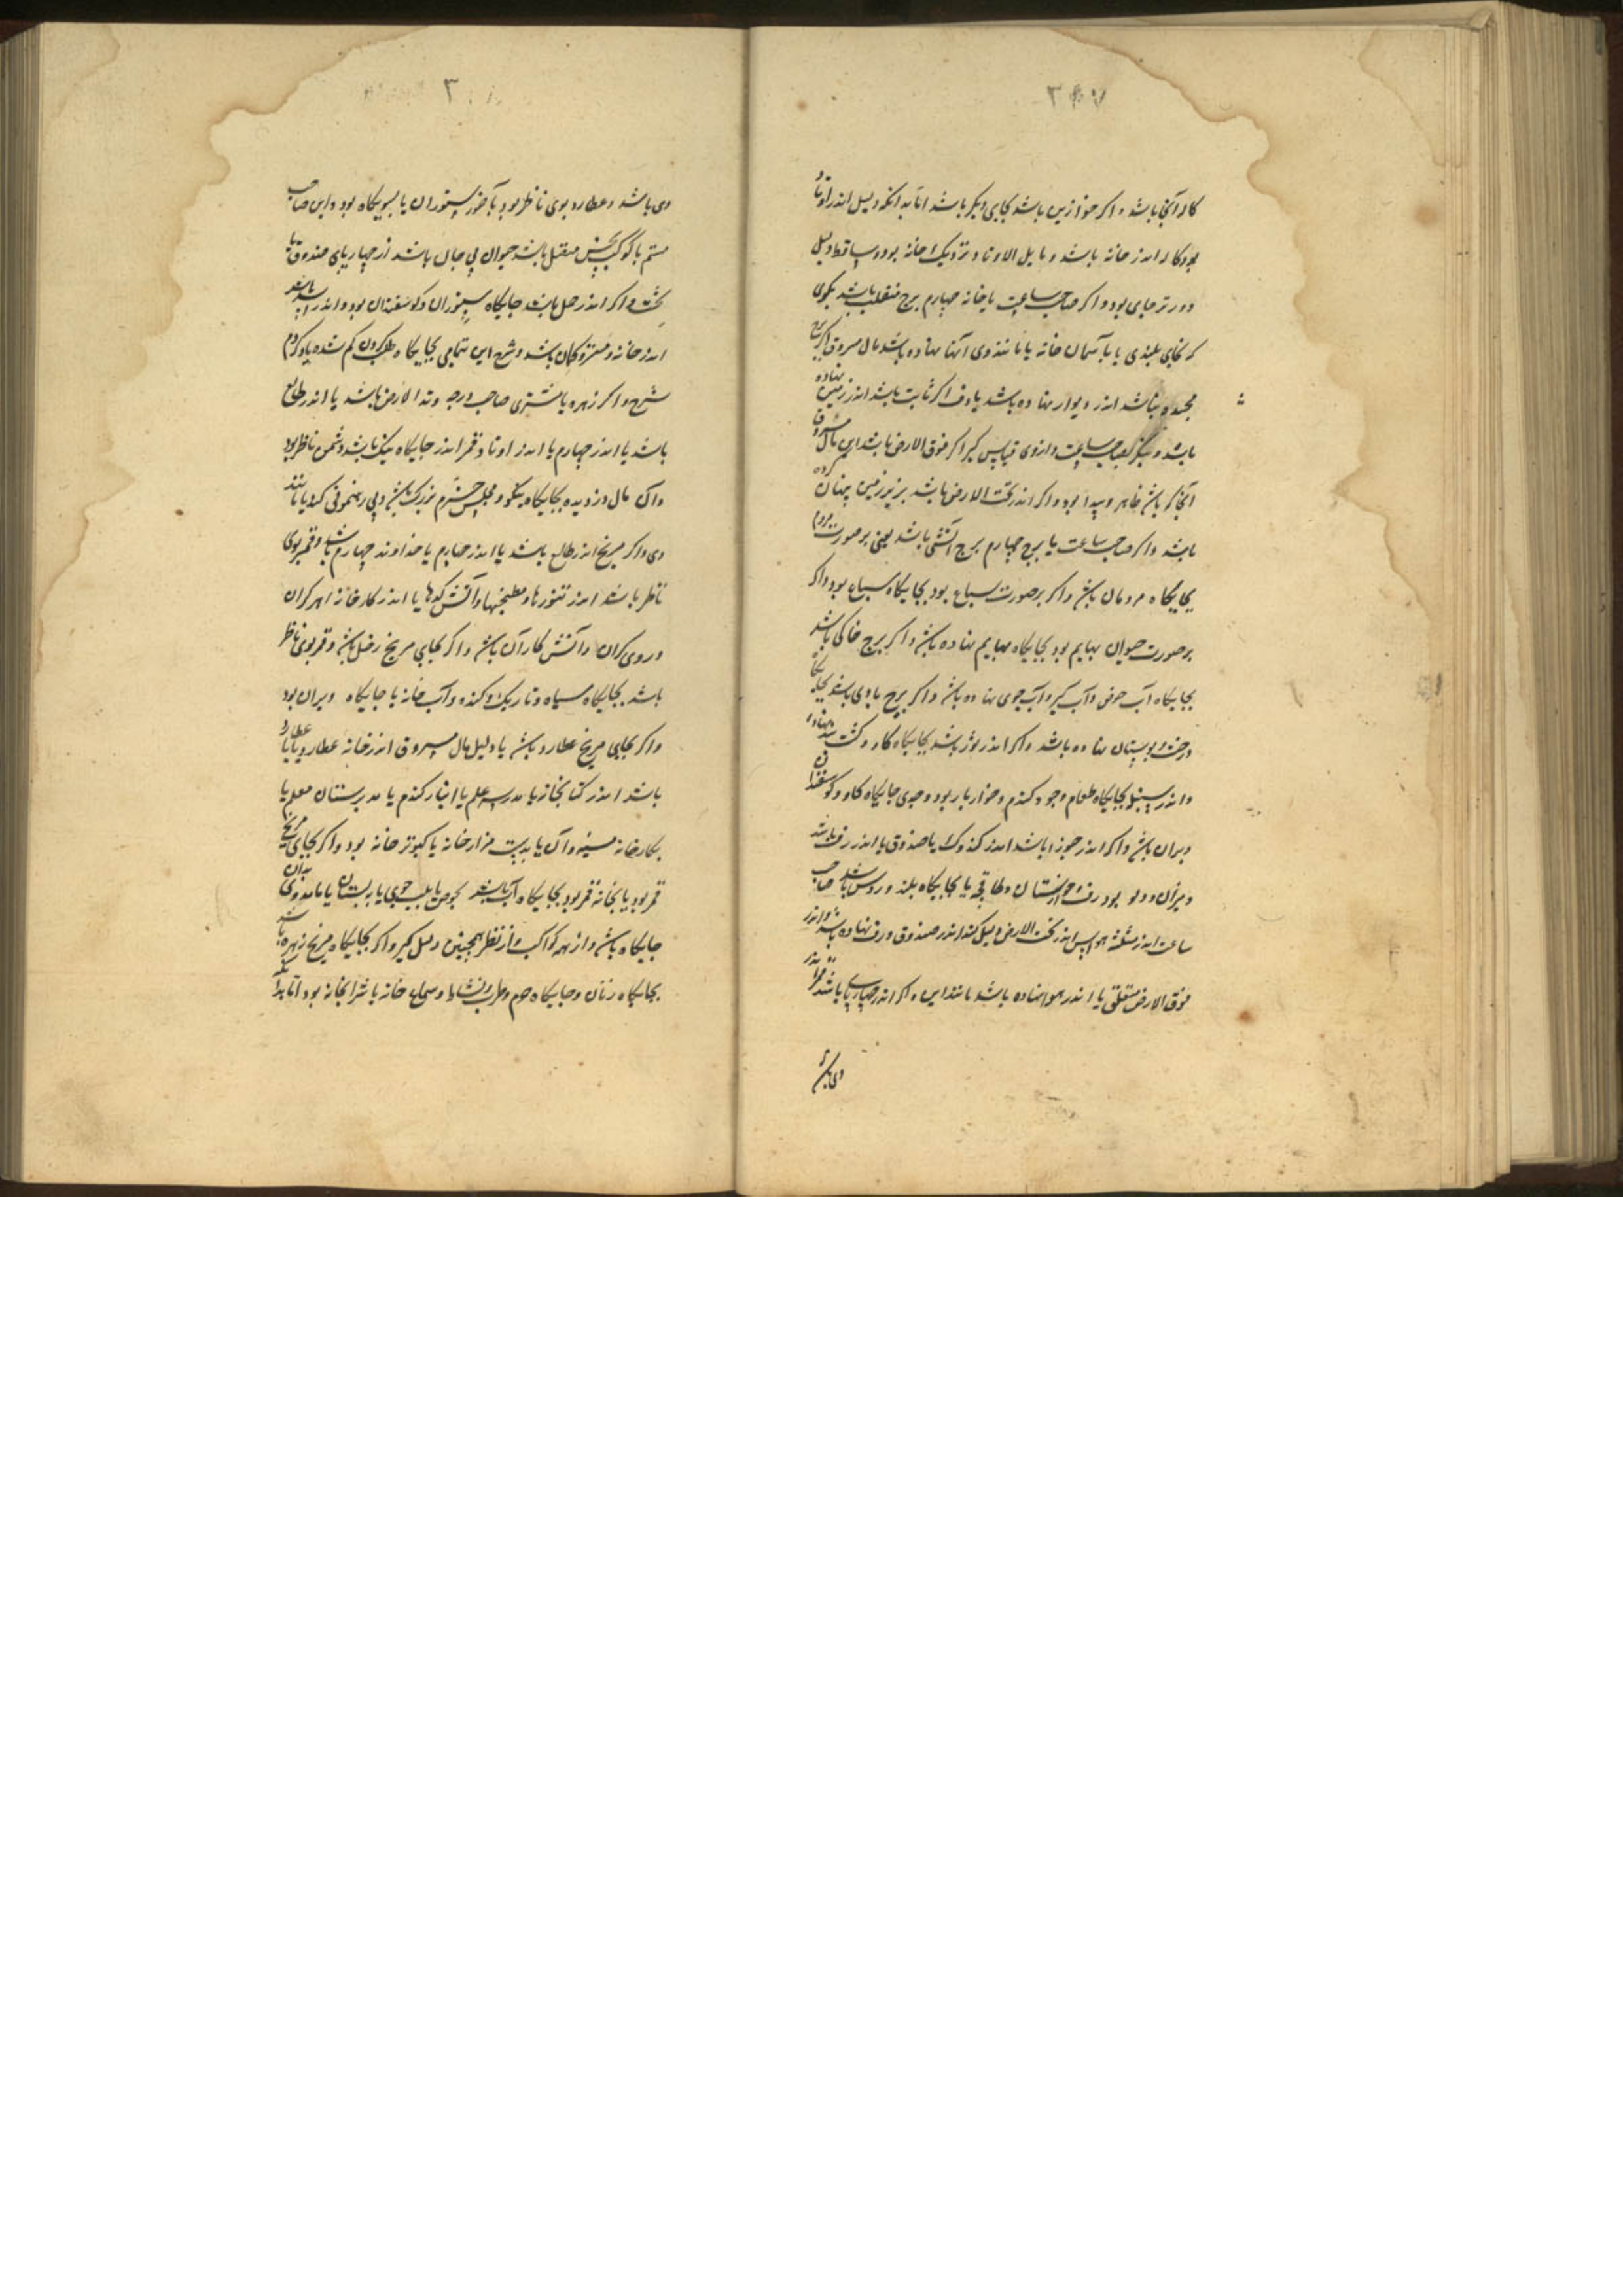 کاله آنجا باشد و اکر جوازین باشد بجایی دیکر باشد اما بدانکه دلیل اندر اوتاد
بود کاله اندر خانه باشد و مایل الاوتاد نزدیک خانه بود و ساقط دلیل
دورتر جای بود و اکر صاحب ساعت یا خانه چهارم برج منقلب باشد بکوی
که بجای بلندی یا بآسمان خانه یا مانند وی آنها نهاده باشد مال مسروق اکر برج
باشد اندر دیوار نهاده باشد یا رف اکر ثابت باشد اندر زمین نهاده
باشد و بنکر بصاحب ساعت و از وی قیاس کیر اکر فوق الارض باشد این مال مسروق
آنجا که باشد ظاهر و پیدا بود و اکر اندر تحت الارض باشد بزیر زمین پنهان کرده
باشد و اکر صاحب ساعت یا برج چهارم برج آتشی باشد یعنی بر صورت مردم
بجایکاه مردمان باشد و اکر بر صورت سباع بود بجایکاه سباع بود و اکر
بر صورت حیوان بهایم بود بجایکاه بهایم نهاده باشد و اکر برج خاکی باشد
بجایکاه آب حوض و آب کیر و آب جوی نهاده باشد و اکر برج بادی باشد بجایکاه
درخت و بوستان نهاده باشد و اکر اندر ثور باشد بجایکاه کاو و کشت نهاده
و اندر سنبله بجایکاه طعام و جو و کندم و خواربار بود و جدی جایکاه کاو و کوسفندان
ویران باشد و اکر اندر جوزا باشد اندر کندوک یا صندوق یا اندر رف باشد
و میزان و دلو بود رف و طاقچه یا بجایکاه بلند و روشن باشد صاحب
ساعت اندر مثلثه هوا پس اندر تحت الارض دلیل کند اندر صندوق و رف نهاده باشد و اندر
فوق الارض معلق یا اندر هوا نهاده باشد مانند این و اکر اندر چهارپای باشد
وی باشد
وی باشد و عطارد بوی ناظر بود بآخور ستوران یا بسویکاه بود و این صاحب
ستم با کوکب نحس متصل باشد حیوان بی جان باشد از چهارپای صندوق یا
تخت و اکر اندر حمل باشد جایکاه ستوران و کوسفندان بود و اندر اسد باشد
اندر خانه و باشد و شرح این تمامی بجایکاه طلب کردن کم شده یاد کردم
شرح و اکر زهره یا مشتری صاحب درجه وتد الارض باشد یا اندر طالع
باشد یا اندر چهارم یا اندر اوتاد و قمر اندر جایکاه نیک باشد و شمس ناظر بود
و آن مال دزدیده بجایکاه نیکو و مجلس خرم بزرک باشد و بی رهنمونی کند یا مانند
وی و اکر مریخ اندر طالع باشد یا اندر چهارم یا خداوند چهارم باشد و قمر بوی
ناظر باشد اندر تنورها و مطبخها و آتشکدها یا اندر کارخانه آهنکران
و روی کران و آتش کاران باشد و اکر بجای مریخ زحل باشد و قمر بوی ناظر
باشد بجایکاه سیاه و تاریک و کنده و آب خانه یا جایکاه ویران بود
و اکر بجای مریخ عطارد باشد یا دلیل مال مسروق اندر خانه عطارد باشد
باشد اندر کتابخانه یا مدرسه علم یا انبار کندم یا دبیرستان معلم یا
بکارخانه یا کبوتر خانه بود و اکر بجای مریخ
قمر بود یا بخانه قمر بود بجایکاه آب باشد بحوض یا بلب جوی یا ببستان یا مانند وی بدان
جایکاه باشد و از همه کواکب و از نظر همچنین دلیل کیر و اکر بجایکاه مریخ زهره باشد
بجایکاه زنان و جایکاه حرم و طرب و نشاط و سماع خانه یا شرابخانه بود اما بدانکه